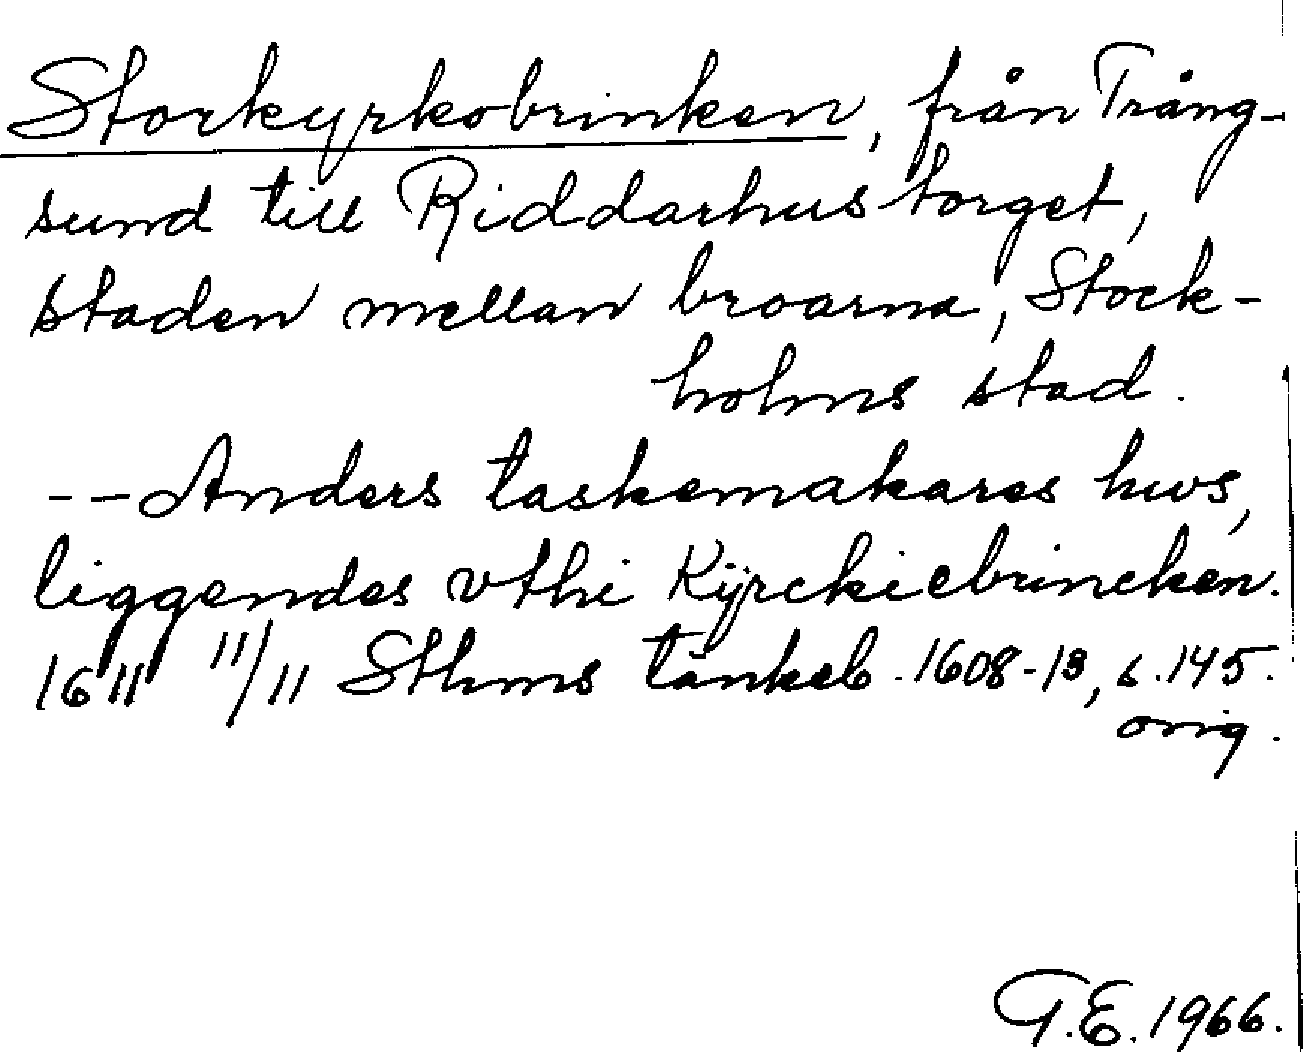 Storkyrkobrinken, från Trång-
sund till Riddarhustorget,
staden mellan broarna, Stock-
holms stad.
-- Anders taskemakares hws,
liggendes vthi Kÿrckiebrincken.
1611 11/11 Sthms tänkeb. 1608-13, s. 145.
orig.
G.E. 1966.